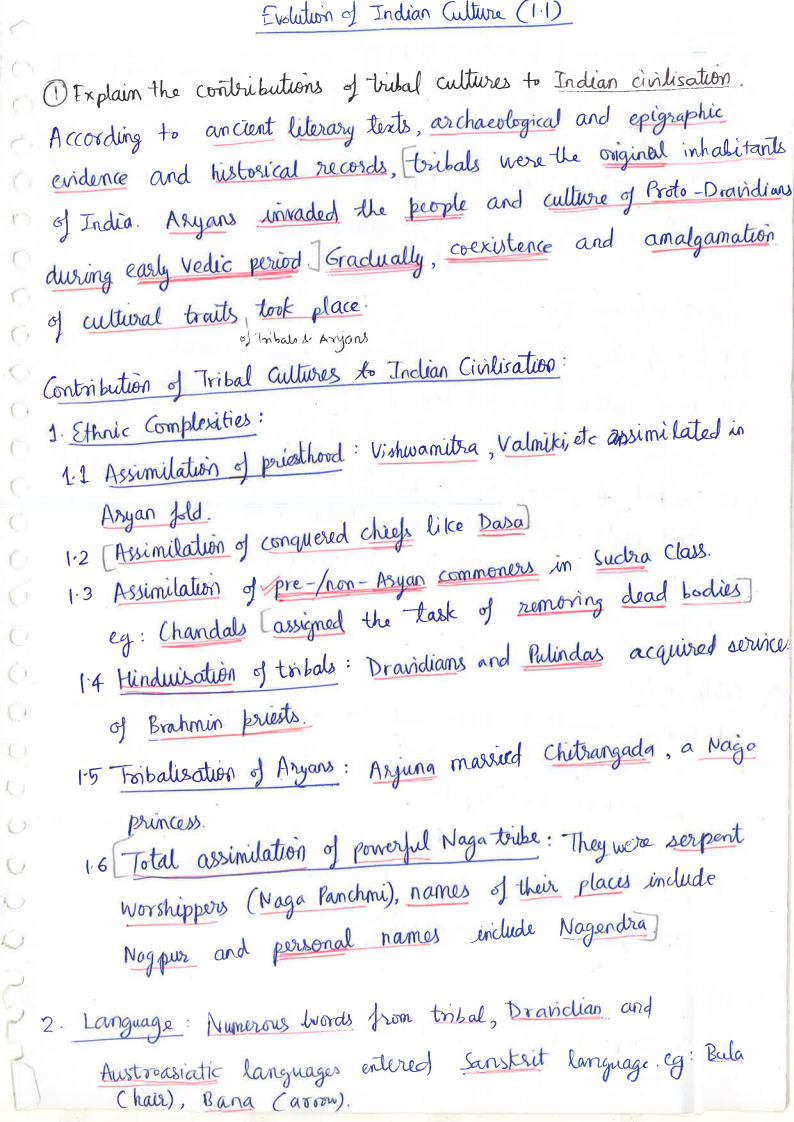 Evolution of Indian Culture (1.1)
① Explain the contributions of tribal cultures to Indian civilisation.
According to ancient literary texts, archaeological and epigraphic
evidence and historical records, [tribals were the original inhabitants
of India. Aryans invaded the people and culture of Proto-Dravidians
during early Vedic period.] Gradually, coexistence and amalgamation
of cultural traits, took place.
of Tribals & Aryans
Contribution of Tribal Cultures to Indian Civilisation:
1. Ethnic Complexities:
1.1 Assimilation of priesthood: Vishwamitra, Valmiki, etc assimilated in
Aryan fold.
1.2 [Assimilation of conquered chiefs like Dasa]
1.3 Assimilation of pre-/non-Aryan commoners in Sudra Class.
eg: Chandals [assigned the task of removing dead bodies]
1.4 Hinduisation of tribals: Dravidians and Pulindas acquired service
of Brahmin priests.
1.5 Tribalisation of Aryans: Arjuna married Chitrangada, a Naga
princess.
1.6 [Total assimilation of powerful Naga tribe: They were serpent
worshippers (Naga Panchmi), names of their places include
Nagpur and personal names include Nagendra]
2. Language: Numerous words from tribal, Dravidian and
Austroasiatic languages entered Sanskrit language. eg: Bala
(hair), Bana (arrow).